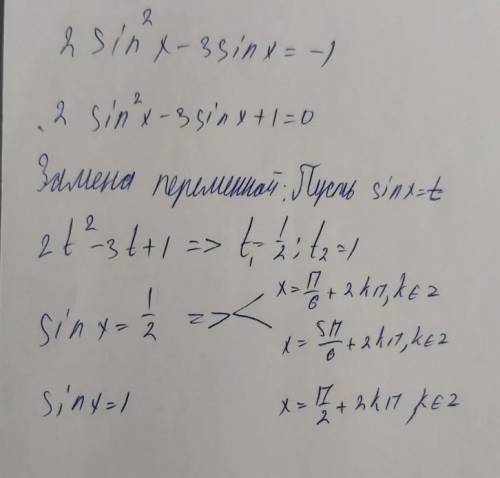 2 sin²x - 3 sinx = -1
2 sin²x - 3 sinx + 1 = 0
Замена переменной: Пусть sinx = t
2t² - 3t + 1 => t₁ = 1/2; t₂ = 1
x = П/6 + 2kП, k∈Z
sinx = 1/2 =>
x = 5П/6 + 2kП, k∈Z
sinx = 1 x = П/2 + 2kП k∈Z